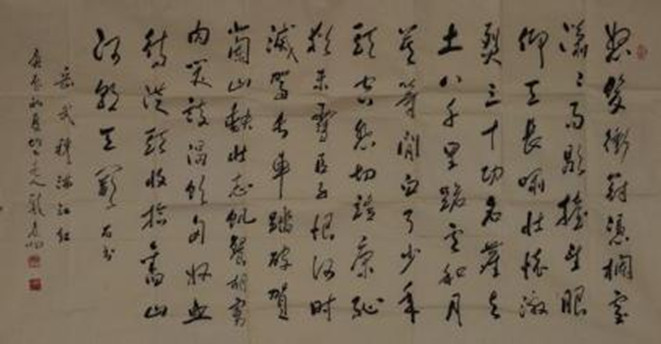 怒髮衝冠憑欄處
瀟々雨歇擡望眼
仰天長嘯壯懷激
烈三十功名塵與
土八千里路雲和月
莫等閒白了少年
頭空悲切靖康恥
猶未雪臣子恨何時
滅駕長車踏破賀
蘭山缺壯志飢餐胡虜
肉笑談渴飲匈奴血
待從頭收拾舊山
河朝天闕 右書
岳武穆滿江紅